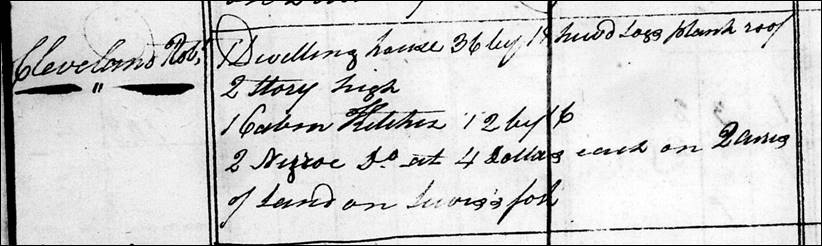 Cleveland Robt
1 Dwelling house 36 by 18 hew'd Logs plank roof
2 Story high
1 Cabin Kitchen 12 by 16
2 Negroe Do at 4 Dollars each on 2 acres
of Land on Lewis's fork